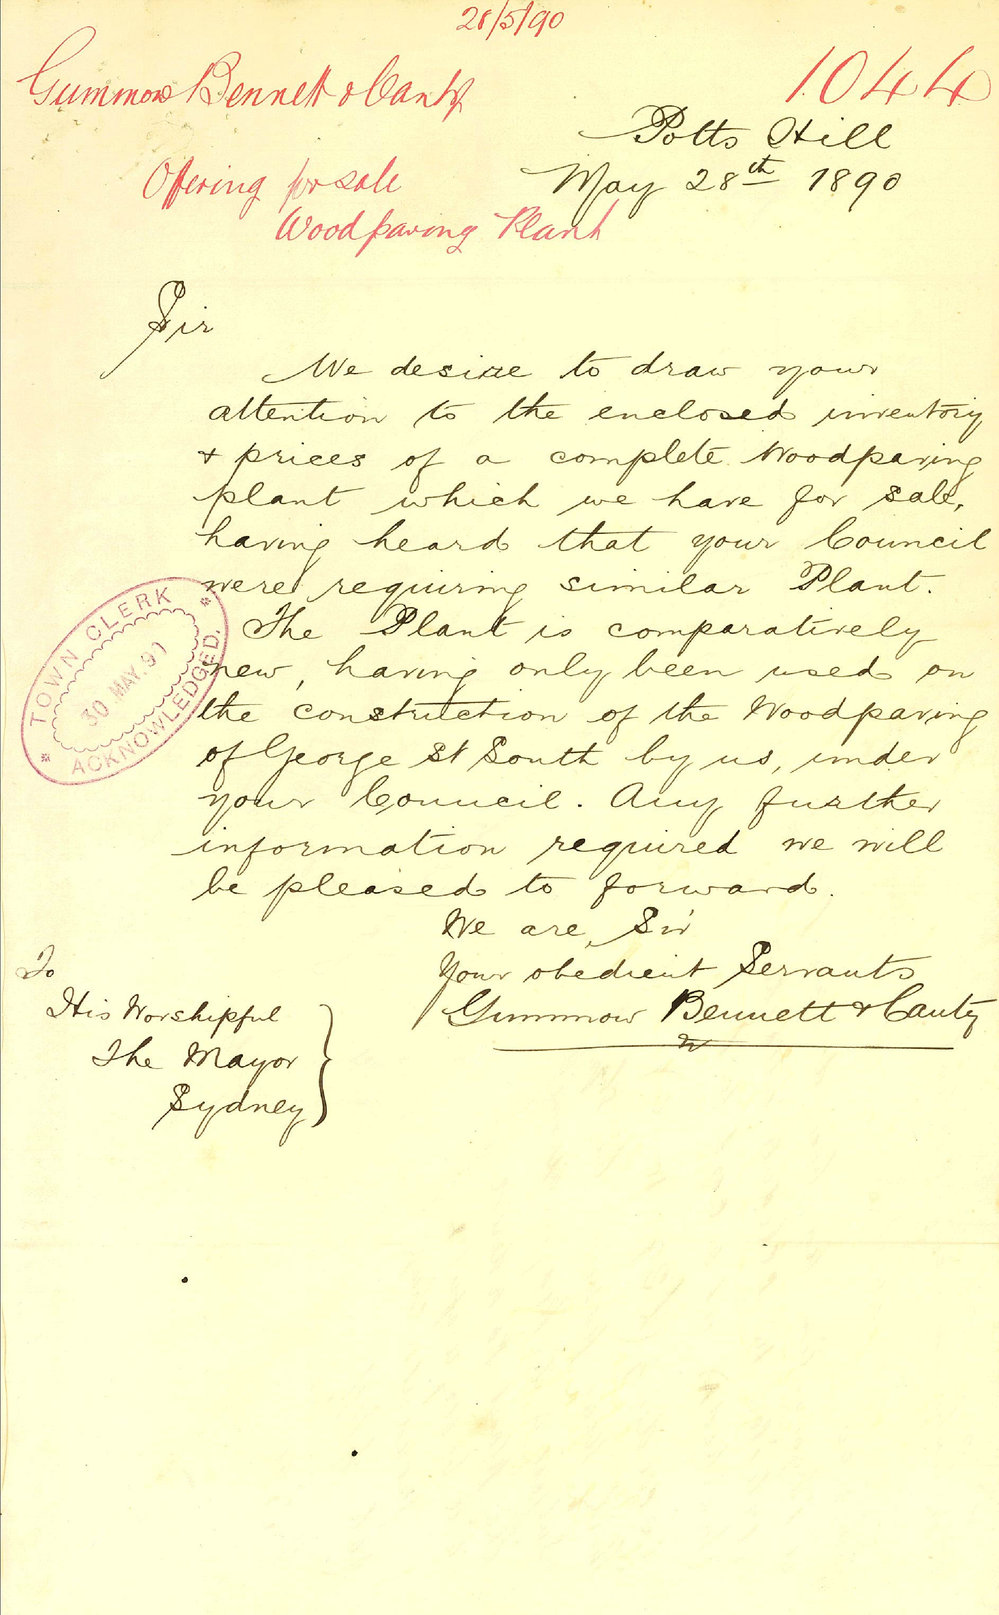 28/5/90
Gummow Bennett & Canty
1044
Offering for sale
Woodpaving Plant
Potts Hill
May 28th 1890
Sir
We desire to draw your
attention to the enclosed inventory
& prices of a complete Woodpaving
plant which we have for sale,
having heard that your Council
were requiring similar Plant.
The Plant is comparatively
new, having only been used on
the construction of the Woodpaving
of George St South by us, under
your Council. Any further
information required we will
be pleased to forward.
We are, Sir
Your obedient Servants
Gummow Bennett & Canty
To
His Worshipful
The Mayor
Sydney
* TOWN CLERK *
30 MAY.90
ACKNOWLEDGED.